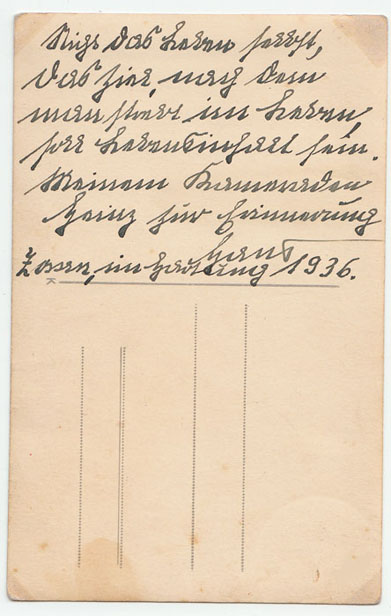 Nicht das Leben selbst,
das Ziel, nach dem
man strebt im Leben,
soll Lebensinhalt sein.
Meinem Kameraden
Heinz zur Erinnerung
Hans
Zossen, im Hartung 1936.